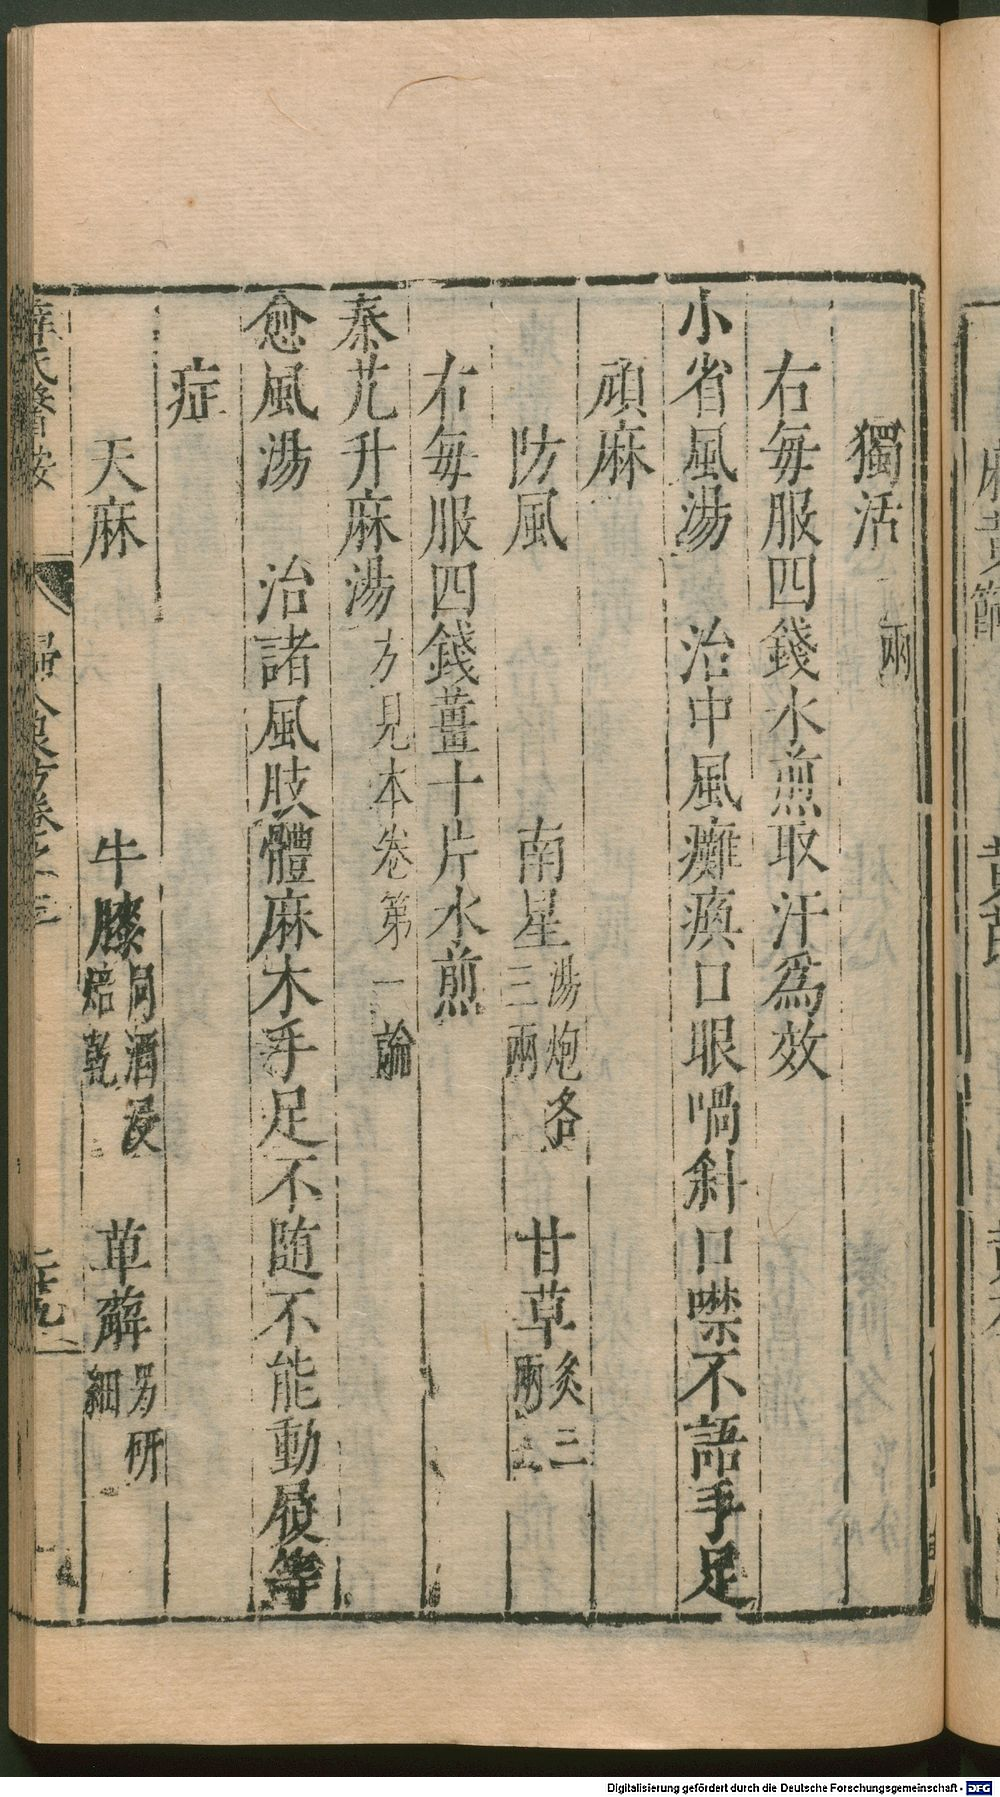 獨活 兩
右每服四錢水煎取汗爲效
小省風湯 治中風癱瘓口眼喎斜口噤不語手足
頑麻
防風 南星湯炮各三兩 甘草炙二兩
右每服四錢薑十片水煎
秦艽升麻湯方見本卷第一論
愈風湯 治諸風肢體麻木手足不随不能動履等
症
天麻 牛膝同酒浸焙乾 萆薢另研細
薛氏醫按 婦人良方卷之三
Digitalisierung gefördert durch die Deutsche Forschungsgemeinschaft - DFG